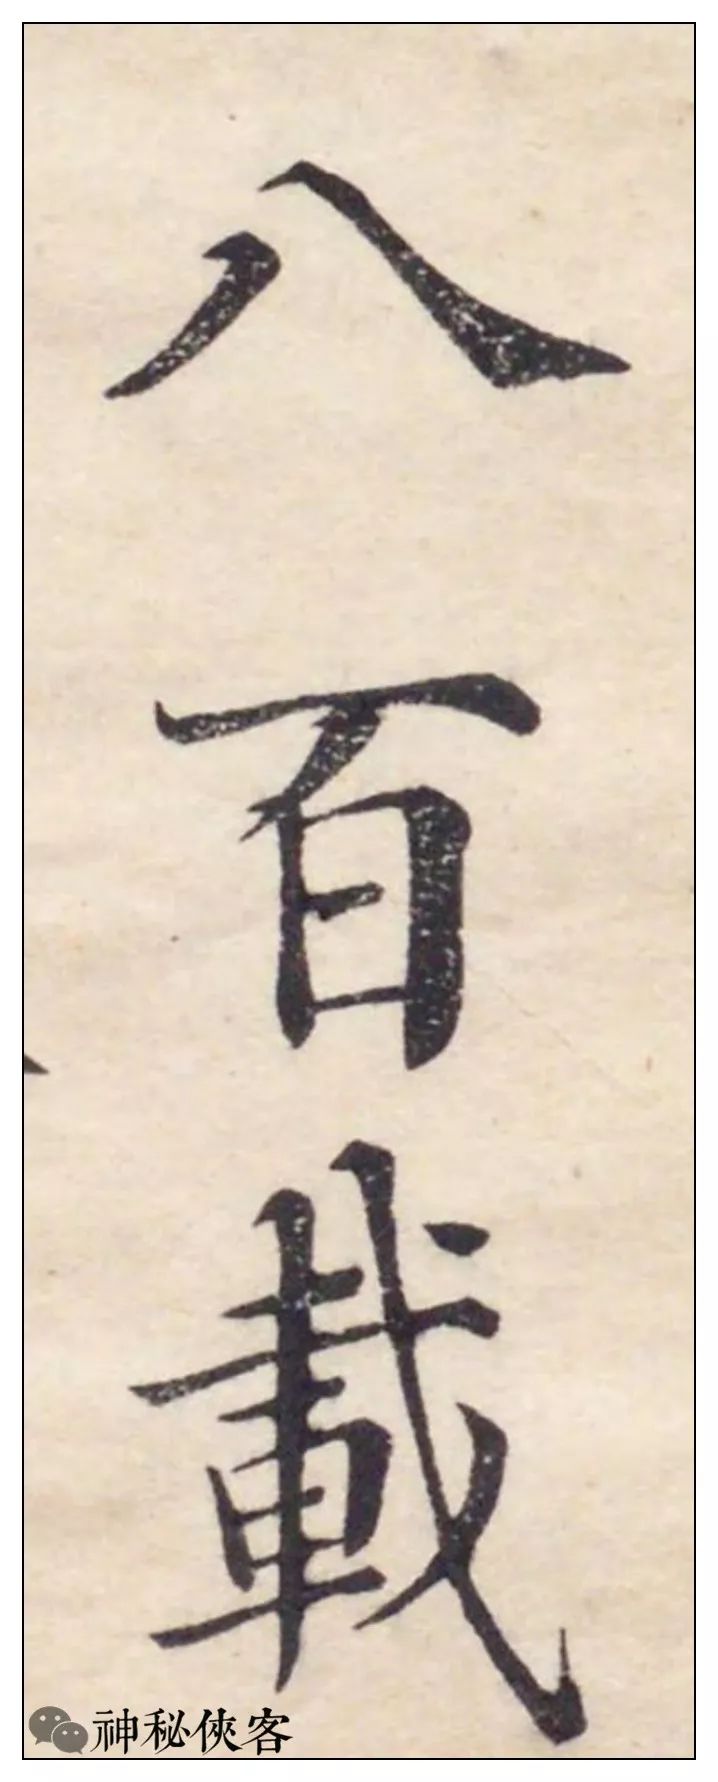 八百載
神秘俠客